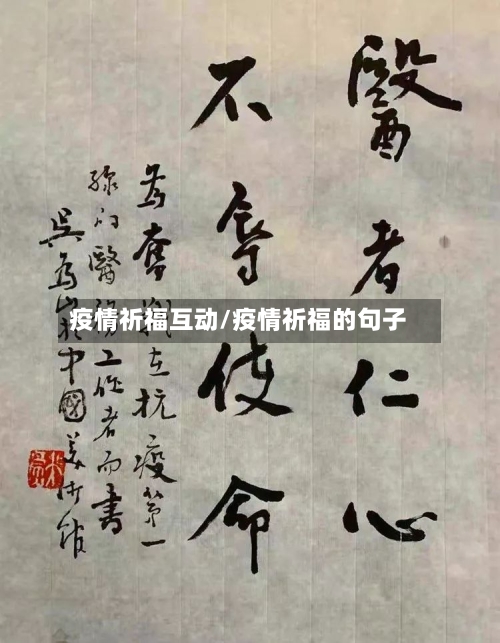 醫者仁心
不辱使命
為奮戰在抗疫第一
線的醫務工作者而書
吳為山於中國美術館
疫情祈福互动/疫情祈福的句子